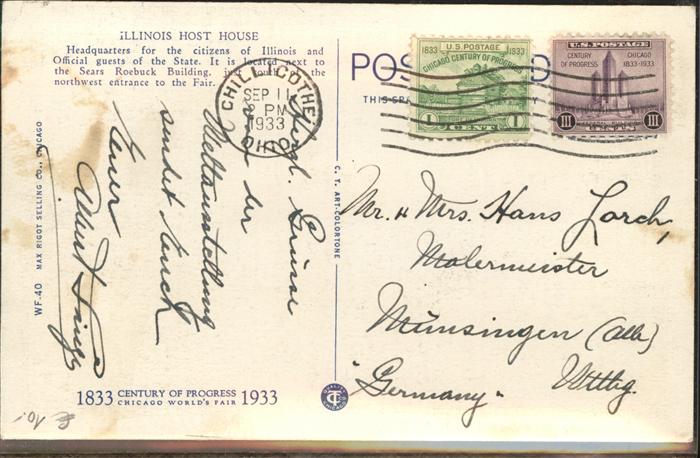 ILLINOIS HOST HOUSE
Headquarters for the citizens of Illinois and
Official guests of the State. It is located next to
the Sears Roebuck Building, just south of the
northwest entrance to the Fair.
Herzl. Grüsse
von der
Weltausstellung
sendet Euch
Euer
Albert
WF-40 MAX RIGOT SELLING CO., CHICAGO
C. T. ART-COLORTONE
1833 CENTURY OF PROGRESS 1933
CHICAGO WORLD'S FAIR
QUALITY
CT
CHICAGO
CHILLICOTHE
SEP 11
2 PM
1933
OHIO
POS D
THIS SP
1833 U.S. POSTAGE 1933
CHICAGO CENTURY OF PROGRESS
1 CENT 1
U.S. POSTAGE
CENTURY OF PROGRESS CHICAGO 1833-1933
III CENTS III
Mr. & Mrs. Hans Lorch,
Malermeister
Münsingen (Alb)
Wttbg.
"Germany"